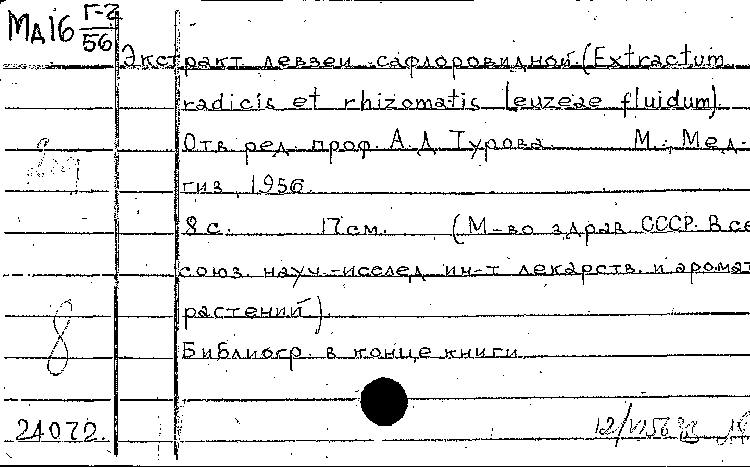 МД16 Г-2/56
Экстракт левзеи сафлоровидной. (Extractum
radicis et rhizomatis Leuzeae fluidum).
Отв. ред. проф. А.Д. Турова. М., Мед-
гиз, 1956.
8 с. 17 см. (М-во здрав. СССР. Все
союз. науч.-исслед. ин-т лекарств. и аромат
растений).
Библиогр. в конце книги
8
24072.